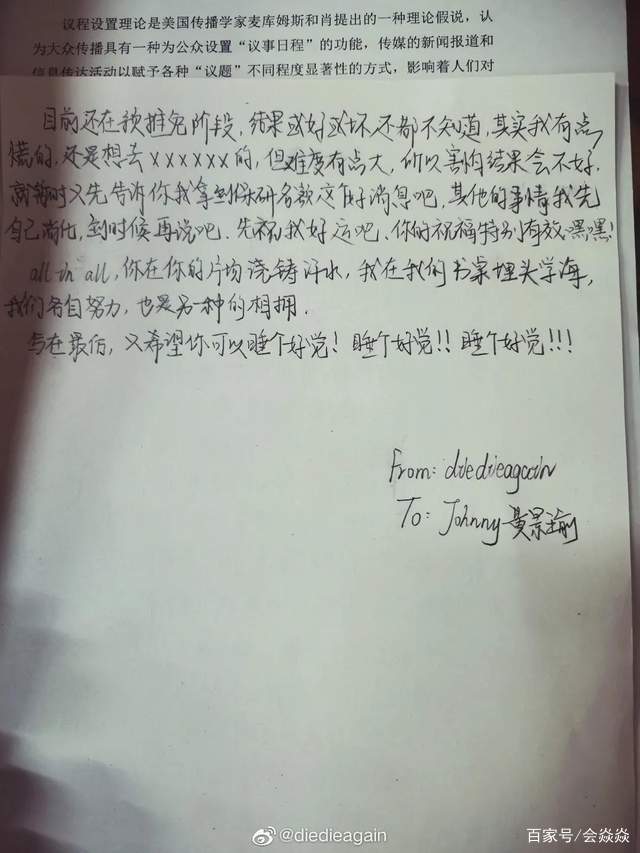 议程设置理论是美国传播学家麦库姆斯和肖提出的一种理论假说，认
为大众传播具有一种为公众设置“议事日程”的功能，传媒的新闻报道和
信息传达活动以赋予各种“议题”不同程度显著性的方式，影响着人们对
目前还在预推免阶段，结果或好或坏还都不知道，其实我有点
慌的，还是想去xxxxxx的，但难度有点大，所以害怕结果会不好，
就暂时只先告诉你我拿到保研名额这个好消息吧，其他的事情我先
自己消化，到时候再说吧。先祝我好运吧、你的祝福特别有效嘿嘿！
all in all，你在你的片场浇铸汗水，我在我们书桌埋头学海，
我们各自努力，也是另一种的相拥．
写在最后，只希望你可以睡个好觉！睡个好觉！！睡个好觉！！！
From: diedieagain
To: Johnny 黄景瑜
@diedieagain
百家号/会焱焱